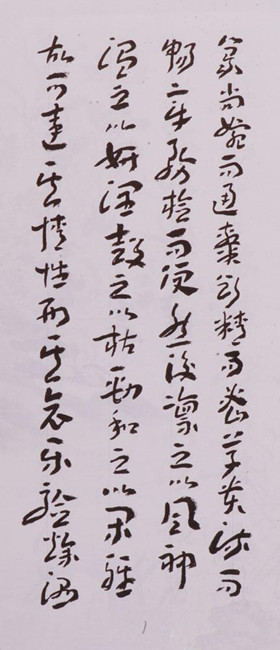 篆尚婉而通隸欲精而密草貴流而
暢章務檢而便然後凜之以風神
溫之以妍潤鼓之以枯勁和之以閑雅
故可達其情性形其哀樂驗燥濕